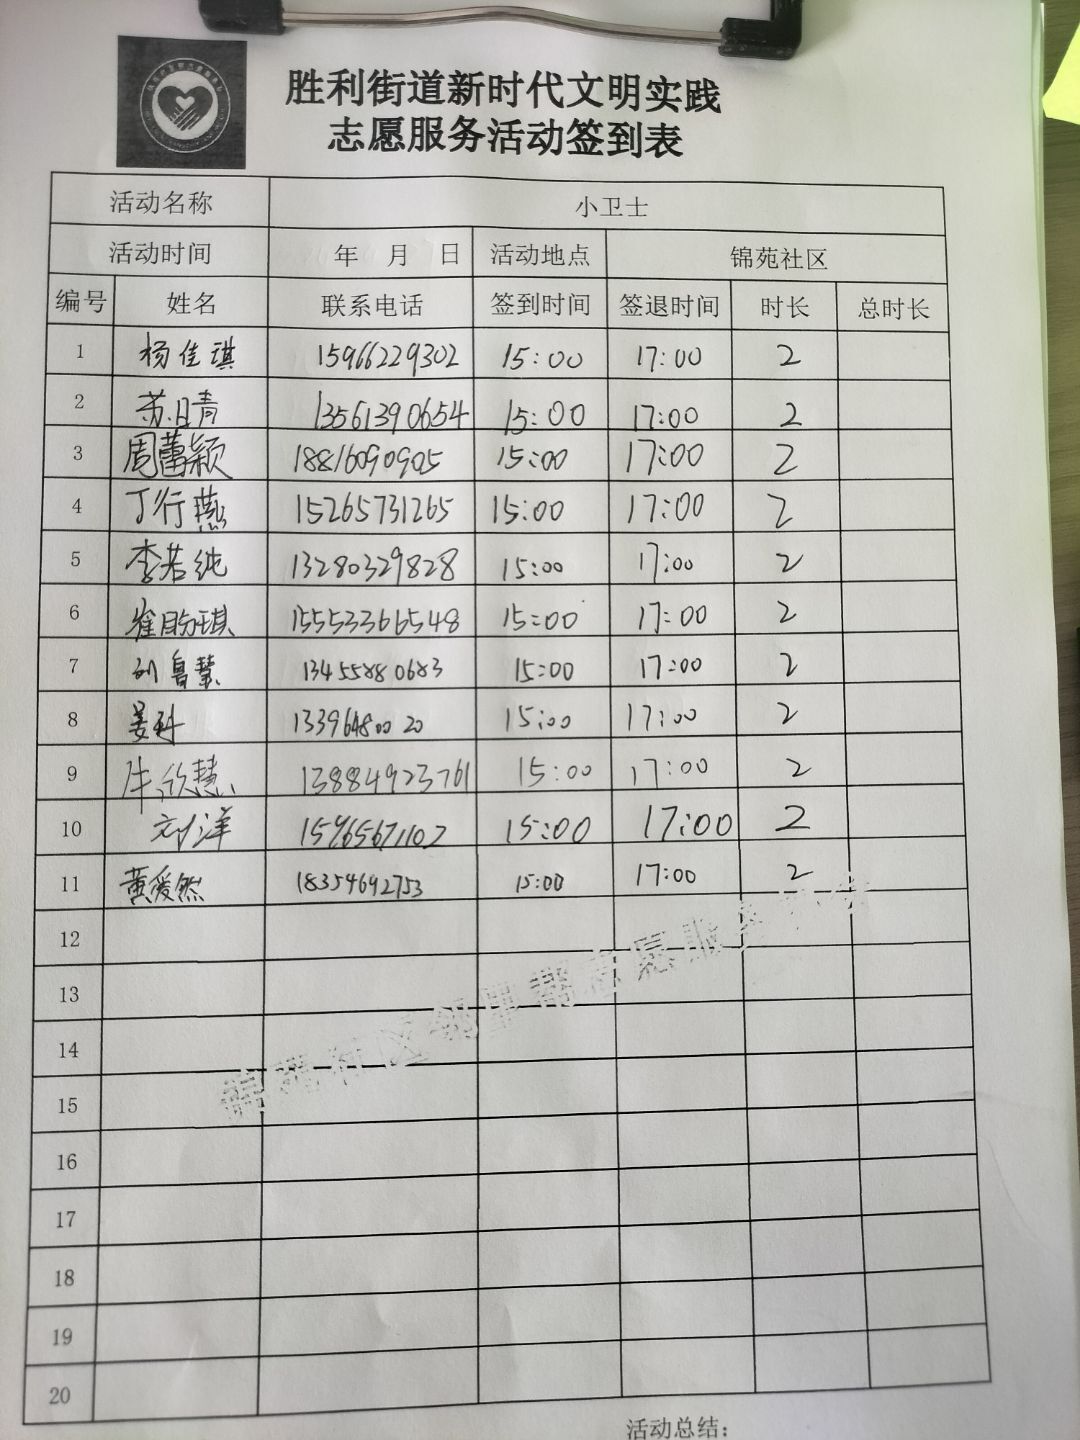 胜利街道新时代文明实践
志愿服务活动签到表
活动名称 小卫士
活动时间 年 月 日 活动地点 锦苑社区
编号 姓名 联系电话 签到时间 签退时间 时长 总时长
1 杨佳琪 15966229302 15:00 17:00 2
2 苏日青 13561390654 15:00 17:00 2
3 周蕾颖 18816090905 15:00 17:00 2
4 丁行燕 15265731265 15:00 17:00 2
5 李若纯 13280329828 15:00 17:00 2
6 崔盼琪 15553366548 15:00 17:00 2
7 刘鲁慧 13455880683 15:00 17:00 2
8 姜科 13396480020 15:00 17:00 2
9 牛欣慧 13884923761 15:00 17:00 2
10 刘洋 15965671102 15:00 17:00 2
11 黄爱然 18354692753 15:00 17:00 2
12
13
14
15
16
17
18
19
20
锦苑社区邻里帮志愿服务
活动总结：